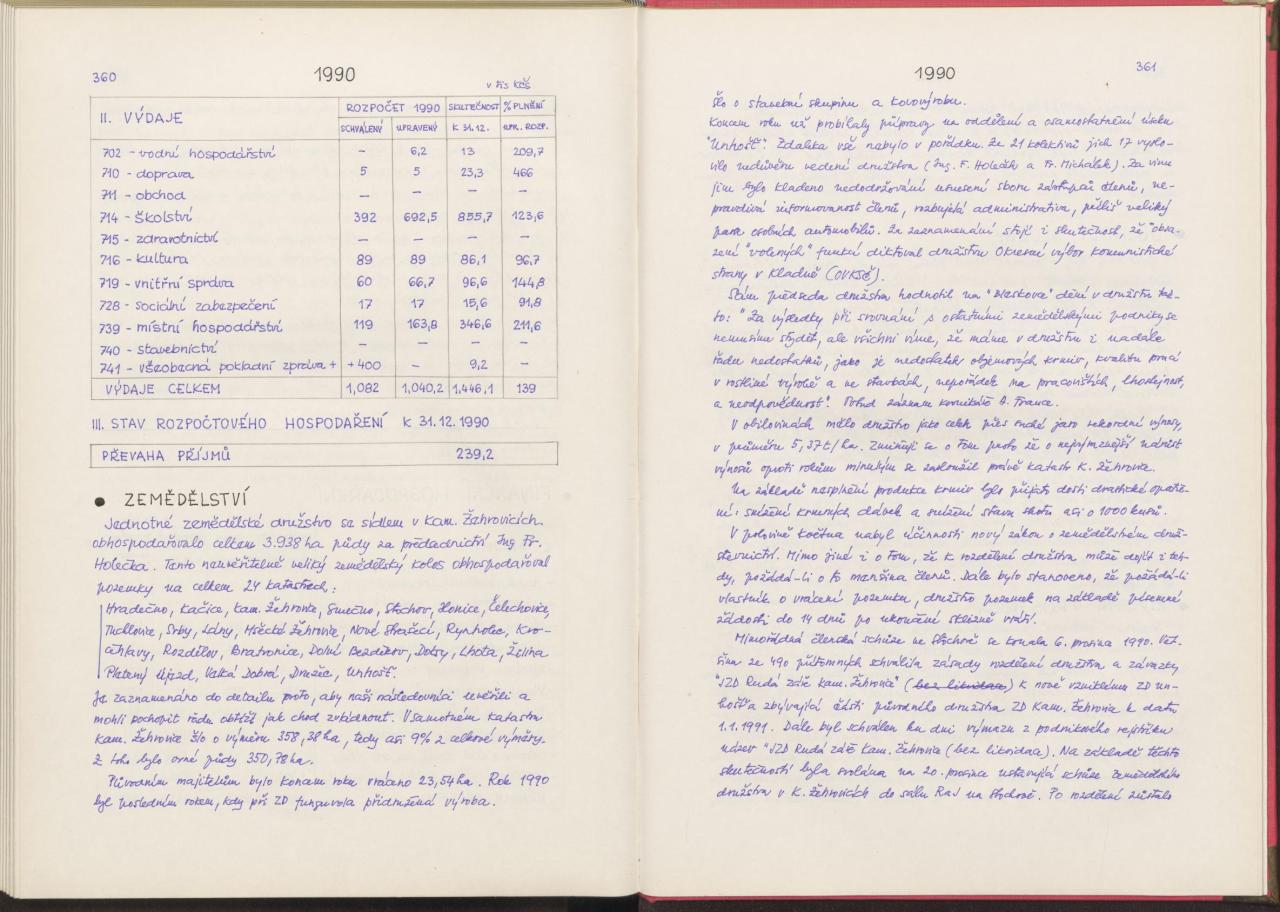 360
1990
v tis Kčs
II. VÝDAJE
ROZPOČET 1990 SKUTEČNOST % PLNĚNÍ
SCHVÁLENÝ UPRAVENÝ K 31.12. UPR. ROZP.
702 - vodní hospodářství — 6,2 13 209,7
710 - doprava 5 5 23,3 466
711 - obchod — — — —
714 - školství 392 692,5 855,7 123,6
715 - zdravotnictví — — — —
716 - kultura 89 89 86,1 96,7
719 - vnitřní správa 60 66,7 96,6 144,8
728 - sociální zabezpečení 17 17 15,6 91,8
739 - místní hospodářství 119 163,8 346,6 211,6
740 - stavebnictví — — — —
741 - všeobecná pokladní zpráva + +400 — 9,2 —
VÝDAJE CELKEM 1,082 1,040,2 1,446,1 139
III. STAV ROZPOČTOVÉHO HOSPODAŘENÍ K 31.12.1990
PŘEVAHA PŘÍJMŮ 239,2
● ZEMĚDĚLSTVÍ
Jednotné zemědělské družstvo se sídlem v Kam. Žehrovicích
obhospodařovalo celkem 3.938 ha půdy za předsednictví Ing Fr.
Holečka. Tento neuvěřitelně veliký zemědělský kolos obhospodařoval
pozemky na celkem 24 katastrech:
Hradečno, Kačice, Kam. Žehrovice, Smečno, Stochov, Honice, Čelechovice,
Tuchlovice, Srby, Lány, Mšecké Žehrovice, Nové Strašecí, Rynholec, Kro-
čehlavy, Rozdělov, Bratronice, Dolní Bezděkov, Doksy, Lhota, Žilina
Pletený Újezd, Velká Dobrá, Družec, Unhošť.
Je zaznamenáno do detailu proto, aby naši následovníci
mohli pochopit řadu obtíží jak chod zvládnout. V samotném katastru
Kam. Žehrovice šlo o výměru 358,38 ha, tedy asi 9% z celkové výměry.
Z toho bylo orné půdy 350,78 ha.
Původním majitelům bylo koncem roku vráceno 23,54 ha. Rok 1990
byl posledním rokem, kdy při ZD fungovala přidružená výroba.
1990
361
Šlo o stavební skupinu a kovovýrobu.
Koncem roku už probíhaly přípravy na oddělení a osamostatnění úseku
"Unhošť". Zdaleka vše nebylo v pořádku. Ze 21 kolektivů jich 17 vyslo-
vilo nedůvěru vedení družstva (Ing. F. Holečk a Fr. Michálek). Za vinu
jim bylo kladeno nedodržování usnesení sboru zástupců členů, ne-
pravdivá informovanost členů, rozbujelá administrativa, příliš veliký
park osobních automobilů. Za zaznamenání stojí i skutečnost, že "obsa-
zení "volených" funkcí diktoval družstvu Okresní výbor komunistické
strany v Kladně (OVKSČ).
Sám předseda družstva hodnotil na dění v družstvu tak-
to: "Za výsledky při srovnání s ostatními zemědělskými podniky se
nemusíme stydět, ale všichni víme, že máme v družstvu i nadále
řadu nedostatků, jako je nedostatek objemových krmiv, kvalitu prací
v rostlinné výrobě a ve stavbách, nepořádek na pracovištích, lhostejnost,
a neodpovědnost". Potud záznam kronikáře A. France.
V obilovinách mělo družstvo jako celek přes suché jaro rekordní výnosy,
v průměru 5,37 t/ha. Zmiňuji se o tom proto že o nejvýraznější nárůst
výnosů oproti rokům minulým se zasloužil právě katastr K. Žehrovice.
Na základě nesplnění produkce krmiv bylo přijato dosti drastické opatře-
ní: snížení krmných dávek a snížení stavu skotu asi o 1000 kusů.
V polovině května nabyl účinnosti nový zákon o zemědělském druž-
stevnictví. Mimo jiné i o tom, že k rozdělení družstva může dojít i teh-
dy, požádá-li o to menšina členů. Dále bylo stanoveno, že požádá-li
vlastník o vrácení pozemku, družstvo pozemek na základě písemné
žádosti do 14 dnů po ukončení sklizně vrátí.
Mimořádná členská schůze ve Stochově se konala 6. prosince 1990. Vět-
šina ze 490 přítomných schválila zásady rozdělení družstva a závazky
"JZD Rudá záře Kam. Žehrovice" (bez likvidace) k nově vzniklému ZD Un-
hošť a zbývající části původního družstva ZD Kam. Žehrovice k datu
1.1.1991. Dále byl schválen ku dni výmazu z podnikového rejstříku
název "JZD Rudá záře Kam. Žehrovice (bez likvidace). Na základě těchto
skutečností byla svolána na 20. prosince ustavující schůze Zemědělského
družstva v K. Žehrovicích do sálu Ráj na Stochově. Po rozdělení zůstalo